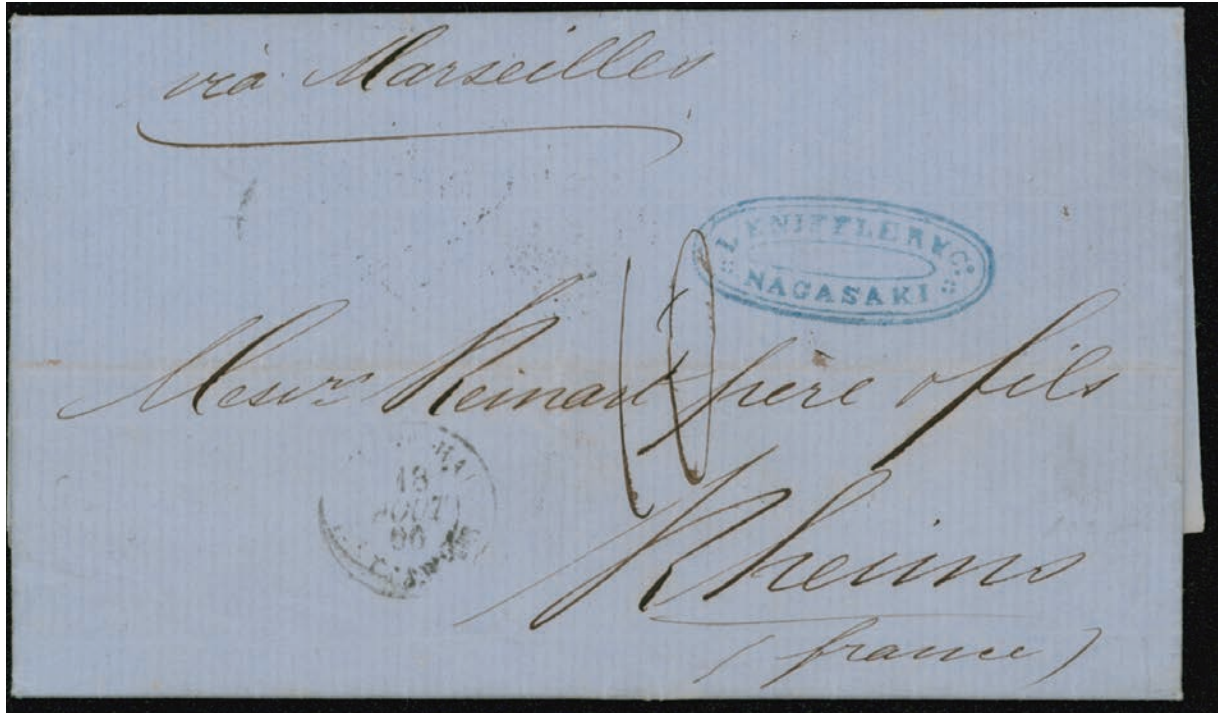 via Marseilles
L. KNIFFLER & Co.
NAGASAKI
10
Messrs Reinart père & fils
18
AOUT
66
Rheims
(france)